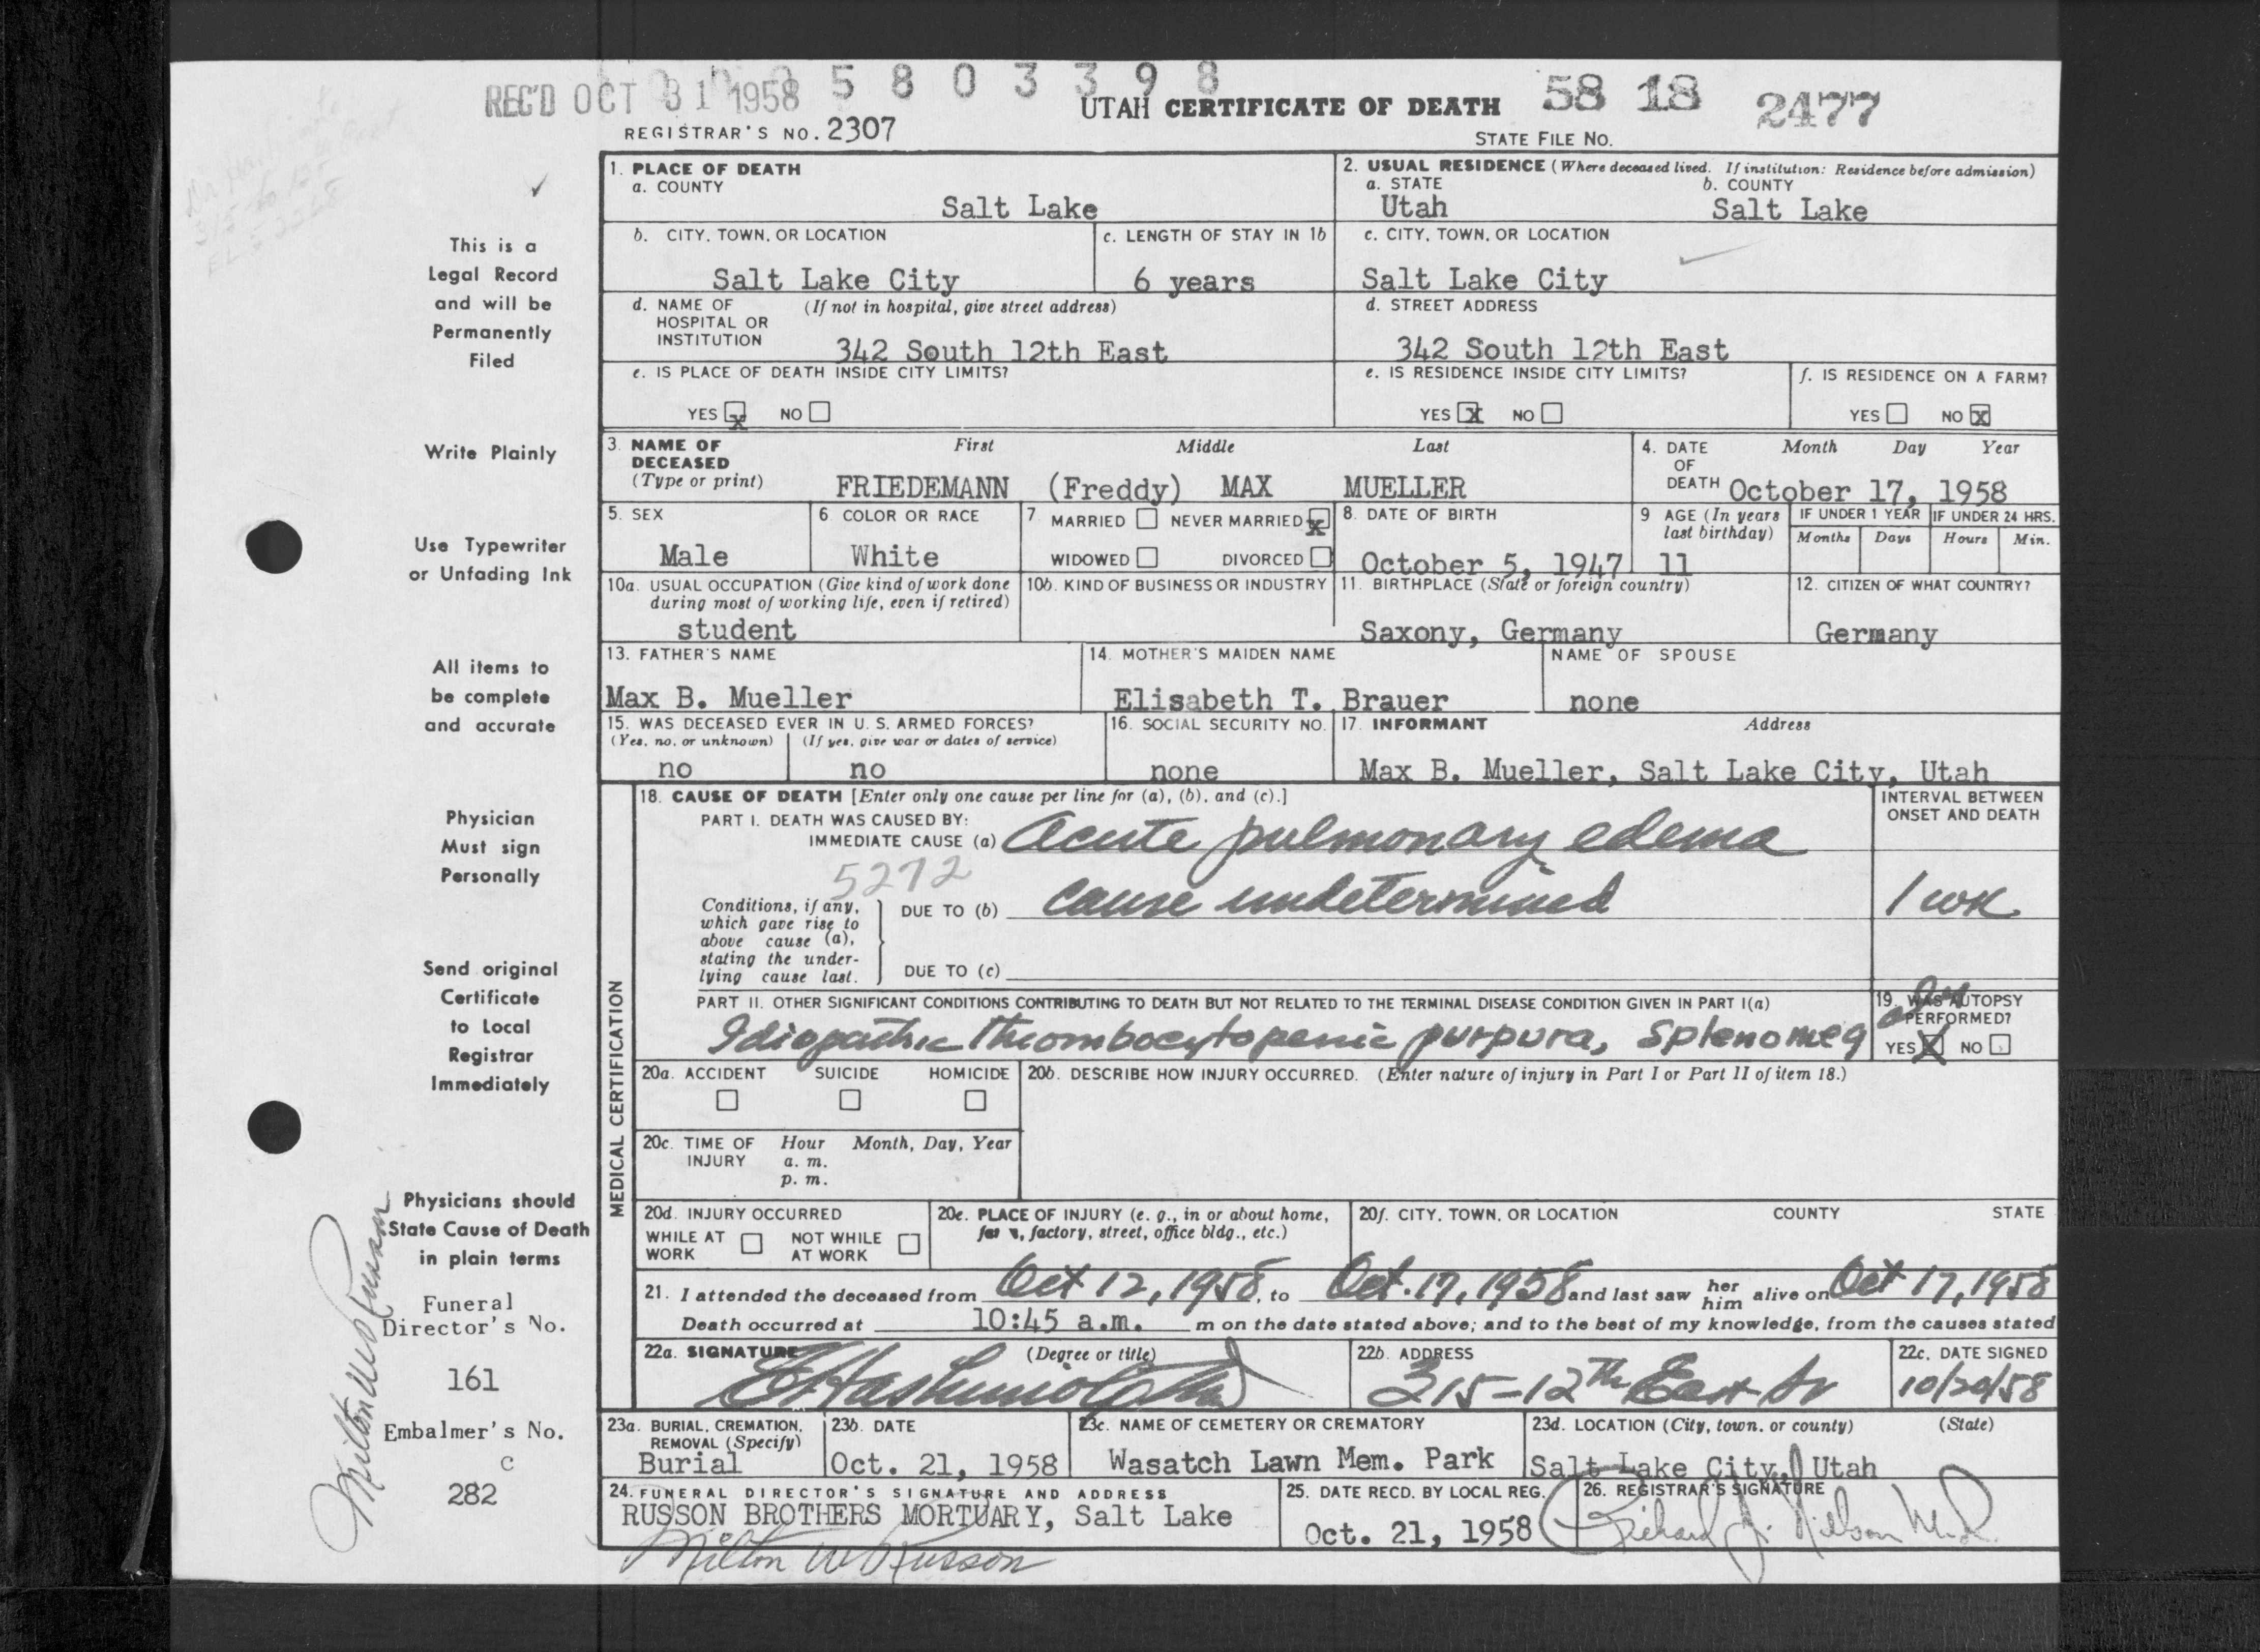 REC'D OCT 31 1958 5 8 0 3 3 9 8
UTAH CERTIFICATE OF DEATH 58 18 2477
REGISTRAR'S NO. 2307 STATE FILE NO.
1. PLACE OF DEATH 2. USUAL RESIDENCE (Where deceased lived. If institution: Residence before admission)
a. COUNTY a. STATE b. COUNTY
Salt Lake Utah Salt Lake
b. CITY, TOWN, OR LOCATION c. LENGTH OF STAY IN 1b c. CITY, TOWN, OR LOCATION
Salt Lake City 6 years Salt Lake City
d. NAME OF HOSPITAL OR INSTITUTION (If not in hospital, give street address) d. STREET ADDRESS
342 South 12th East 342 South 12th East
e. IS PLACE OF DEATH INSIDE CITY LIMITS? e. IS RESIDENCE INSIDE CITY LIMITS? f. IS RESIDENCE ON A FARM?
YES x NO YES X NO YES NO X
3. NAME OF DECEASED (Type or print) First Middle Last 4. DATE OF DEATH Month Day Year
FRIEDEMANN (Freddy) MAX MUELLER October 17, 1958
5. SEX 6. COLOR OR RACE 7. MARRIED NEVER MARRIED x 8. DATE OF BIRTH 9. AGE (In years last birthday) IF UNDER 1 YEAR IF UNDER 24 HRS.
Months Days Hours Min.
Male White WIDOWED DIVORCED October 5, 1947 11
10a. USUAL OCCUPATION (Give kind of work done during most of working life, even if retired) 10b. KIND OF BUSINESS OR INDUSTRY 11. BIRTHPLACE (State or foreign country) 12. CITIZEN OF WHAT COUNTRY?
student Saxony, Germany Germany
13. FATHER'S NAME 14. MOTHER'S MAIDEN NAME NAME OF SPOUSE
Max B. Mueller Elisabeth T. Brauer none
15. WAS DECEASED EVER IN U. S. ARMED FORCES? 16. SOCIAL SECURITY NO. 17. INFORMANT Address
(Yes, no, or unknown) (If yes, give war or dates of service)
no no none Max B. Mueller, Salt Lake City, Utah
18. CAUSE OF DEATH [Enter only one cause per line for (a), (b), and (c).] INTERVAL BETWEEN ONSET AND DEATH
PART I. DEATH WAS CAUSED BY:
IMMEDIATE CAUSE (a) Acute pulmonary edema
5272
Conditions, if any, which gave rise to above cause (a), stating the underlying cause last.
DUE TO (b) cause undetermined 1 wk
DUE TO (c)
PART II. OTHER SIGNIFICANT CONDITIONS CONTRIBUTING TO DEATH BUT NOT RELATED TO THE TERMINAL DISEASE CONDITION GIVEN IN PART I(a) 19. WAS AUTOPSY PERFORMED?
Idiopathic thrombocytopenic purpura, splenomeg YES X NO
20a. ACCIDENT SUICIDE HOMICIDE 20b. DESCRIBE HOW INJURY OCCURRED. (Enter nature of injury in Part I or Part II of item 18.)
20c. TIME OF INJURY Hour Month, Day, Year
a. m.
p. m.
MEDICAL CERTIFICATION
20d. INJURY OCCURRED 20e. PLACE OF INJURY (e. g., in or about home, factory, street, office bldg., etc.) 20f. CITY, TOWN, OR LOCATION COUNTY STATE
WHILE AT WORK NOT WHILE AT WORK
21. I attended the deceased from Oct 12, 1958, to Oct. 17, 1958 and last saw her him alive on Oct 17, 1958
Death occurred at 10:45 a.m. m on the date stated above; and to the best of my knowledge, from the causes stated
22a. SIGNATURE (Degree or title) 22b. ADDRESS 22c. DATE SIGNED
315-12th East 10/20/58
23a. BURIAL, CREMATION, REMOVAL (Specify) 23b. DATE 23c. NAME OF CEMETERY OR CREMATORY 23d. LOCATION (City, town, or county) (State)
Burial Oct. 21, 1958 Wasatch Lawn Mem. Park Salt Lake City, Utah
24. FUNERAL DIRECTOR'S SIGNATURE AND ADDRESS 25. DATE RECD. BY LOCAL REG. 26. REGISTRAR'S SIGNATURE
RUSSON BROTHERS MORTUARY, Salt Lake Oct. 21, 1958
Milton W Russon
This is a
Legal Record
and will be
Permanently
Filed
Write Plainly
Use Typewriter
or Unfading Ink
All items to
be complete
and accurate
Physician
Must sign
Personally
Send original
Certificate
to Local
Registrar
Immediately
Physicians should
State Cause of Death
in plain terms
Funeral
Director's No.
161
Embalmer's No.
c
282
Milton W Russon